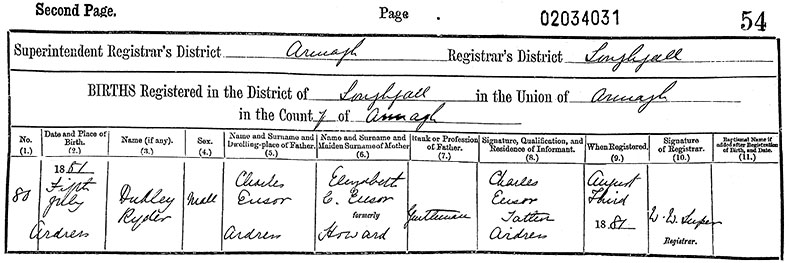 Second Page. Page 02034031 54
Superintendent Registrar's District Armagh Registrar's District Loughgall
BIRTHS Registered in the District of Loughgall in the Union of Armagh
in the County of Armagh
No. (1.) Date and Place of Birth. (2.) Name (if any). (3.) Sex. (4.) Name and Surname and Dwelling-place of Father. (5.) Name and Surname and Maiden Surname of Mother. (6.) Rank or Profession of Father. (7.) Signature, Qualification, and Residence of Informant. (8.) When Registered. (9.) Signature of Registrar. (10.) Baptismal Name if added after Registration of Birth, and Date. (11.)
80
1881
First
July
Ardress
Dudley
Ryder
Male
Charles
Ensor
Ardress
Elizabeth
C. Ensor
formerly
Howard
Gentleman
Charles
Ensor
Father
Ardress
August
Third
1881
Registrar.